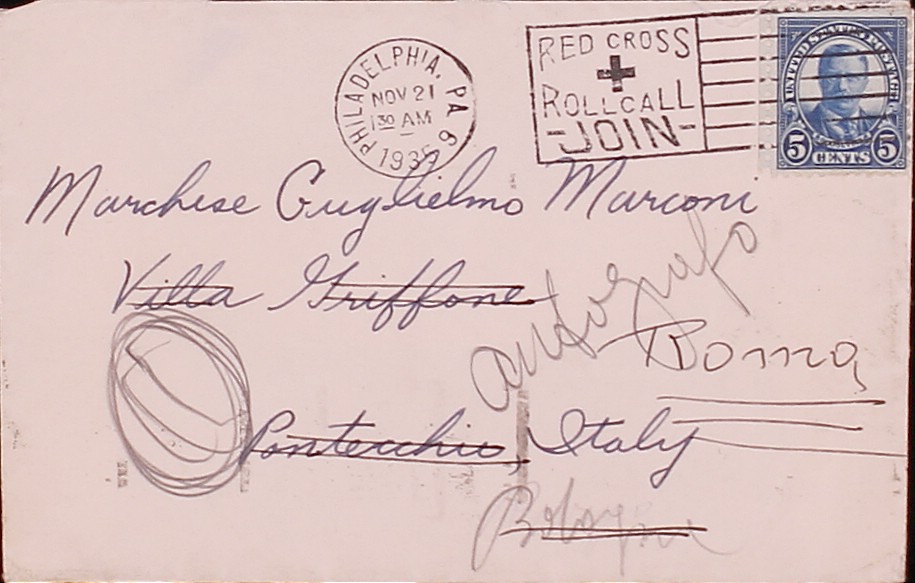 PHILADELPHIA, PA. 6
NOV 21
1 30 AM
1935
RED CROSS
ROLL CALL
-JOIN-
UNITED STATES POSTAGE
5 CENTS 5
Marchese Guglielmo Marconi
Villa Griffone
autografo
Roma,
Pontecchio, Italy
Bologna